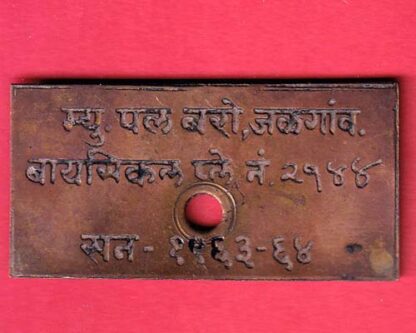 म्यु. पल बरो, जळगांव.
बायसिकल प्ले. नं. २१४४
सन - १९६३-६४